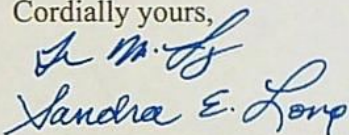 Cordially yours,
M.
Sandra E. Long